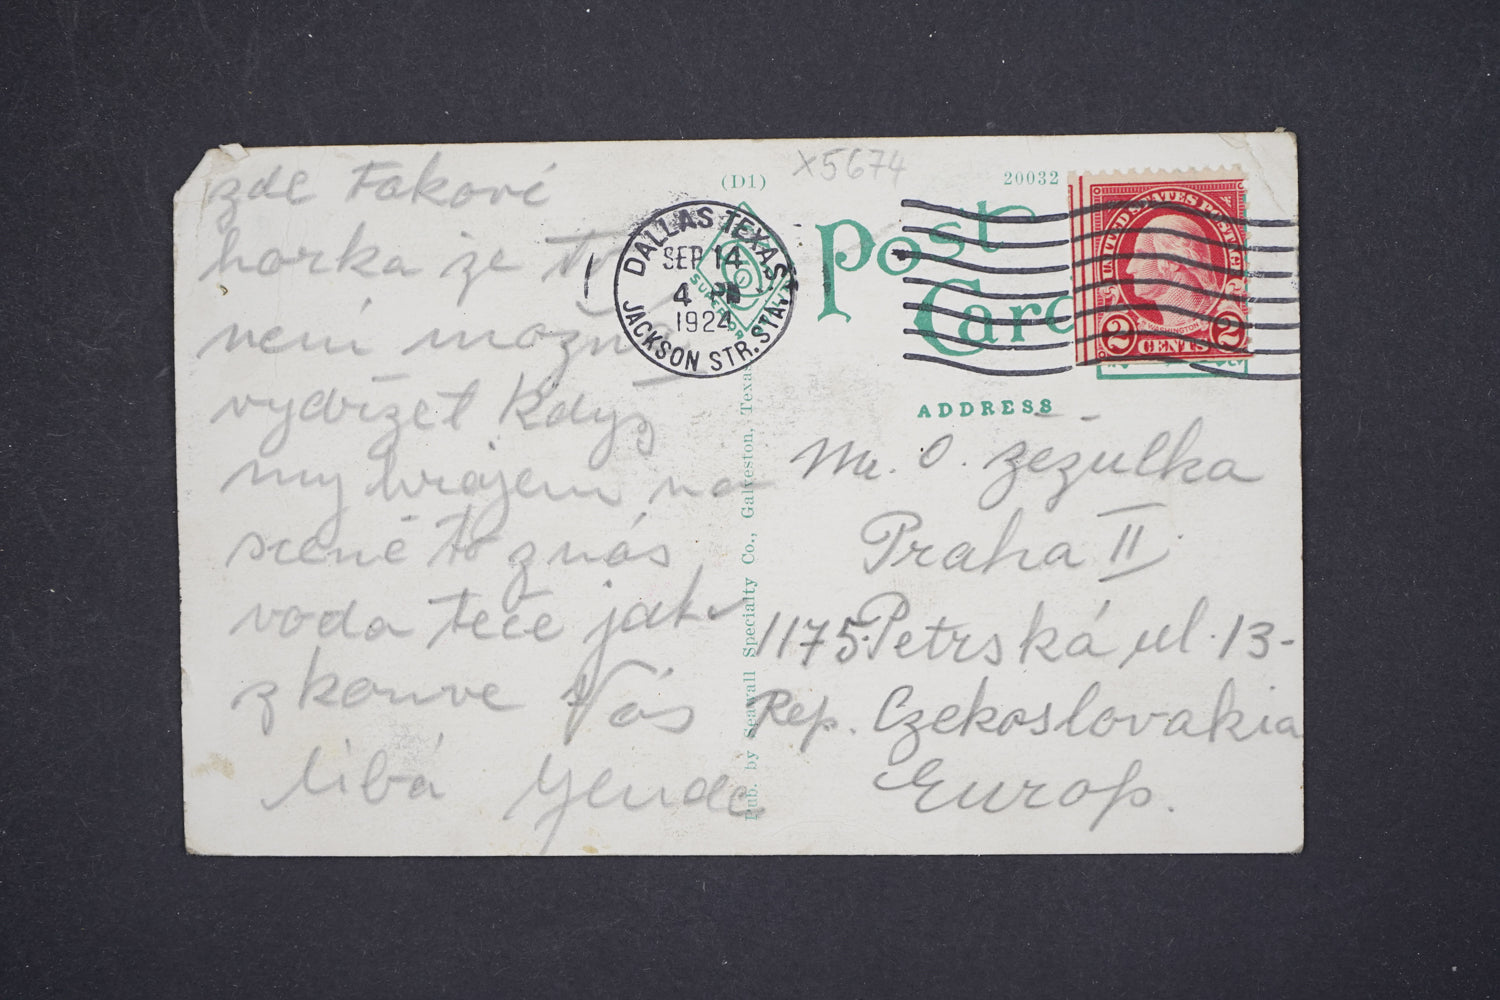 zde Faková
horka že to
není možno
vydržet když
my hrajem na
scéně to z nás
voda teče jak
z konve Vás
líbá Yenda
(D1)
X5674
20032
DALLAS TEXAS
SEP 14
4 PM
1924
JACKSON STR. STA.
SUPERIOR
Post
Card
UNITED STATES POSTAGE
WASHINGTON
2 CENTS 2
ADDRESS
Mr. O. Zezulka
Praha II
1175 Petrská ul. 13-
Rep. Czekoslovakia
Europ.
Pub. by Seawall Specialty Co., Galveston, Texas